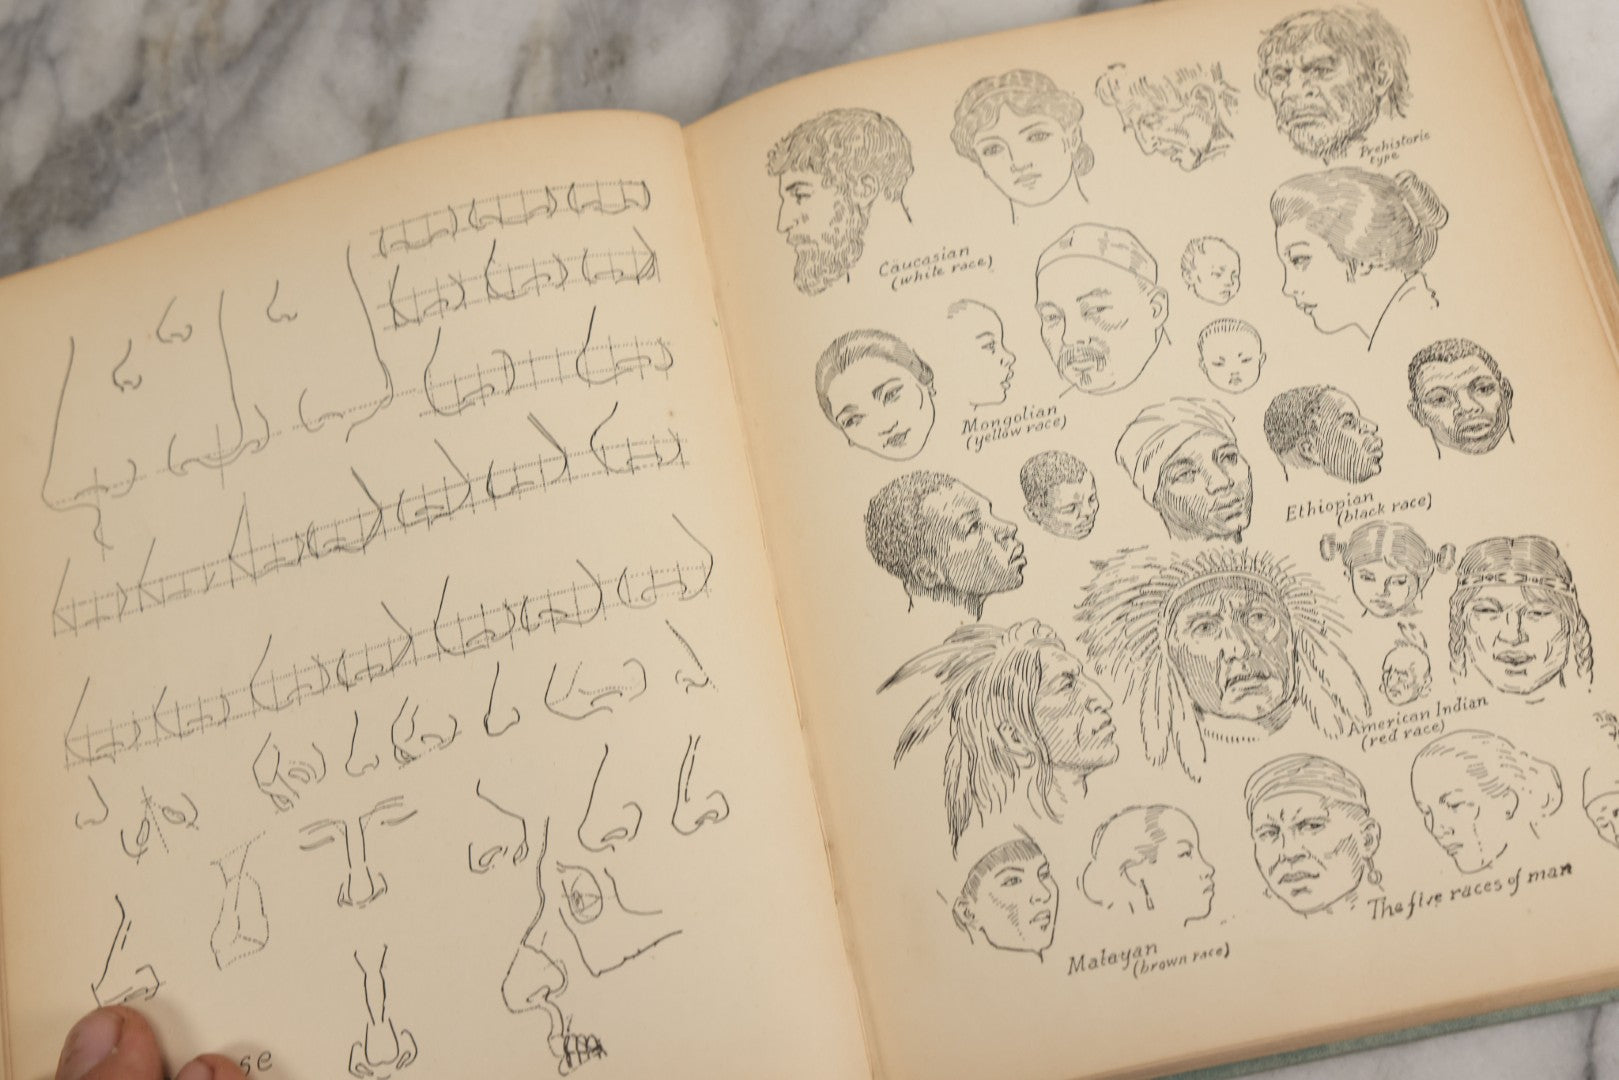 se
Prehistoric
type
Caucasian
(white race)
Mongolian
(yellow race)
Ethiopian
(black race)
American Indian
(red race)
The five races of man
Malayan
(brown race)